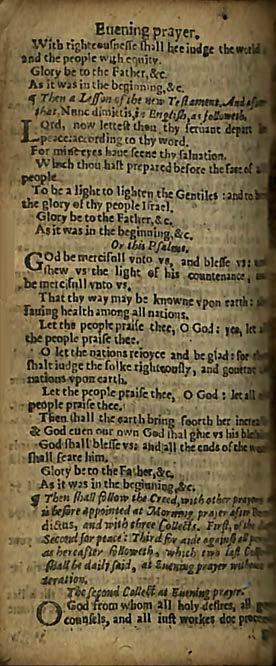 Euening prayer.
With righteousnesse shall hee iudge the world
and the people with equity.
Glory be to the Father, &c.
As it was in the beginning, &c.
¶ Then a Lesson of the new Testament. And after
that, Nunc dimittis, in English, as followeth.
LOrd, now lettest thou thy seruant depart in
peace: according to thy word.
For mine eyes haue seene thy saluation.
Which thou hast prepared before the face of
people.
To be a light to lighten the Gentiles: and to b
the glory of thy people Israel.
Glory be to the Father, &c.
As it was in the beginning, &c.
Or this Psalme.
GOd be mercifull vnto vs, and blesse vs:
shew vs the light of his countenance,
be mercifull vnto vs.
That thy way may be knowne vpon earth:
sauing health among all nations.
Let the people praise thee, O God: yea, let
the people praise thee.
O let the nations reioyce and be glad: for
shalt iudge the folke righteously, and gouerne
nations vpon earth.
Let the people praise thee, O God: let all
people praise thee.
Then shall the earth bring foorth her increa
& God euen our own God shal giue vs his bless
God shall blesse vs: and all the ends of the wo
shall feare him.
Glory be to the Father, &c.
As it was in the beginning, &c.
¶ Then shall follow the Creed, with other prayers
is before appointed at Morning prayer after Be
dictus, and with three Collects. First, of the
Second for peace: Third for aide against all
as hereafter followeth, which two last Col
shall be daily said, at Euening prayer without
teration.
The second Collect at Euening prayer.
O God from whom all holy desires, all g
counsels, and all iust workes doe proce